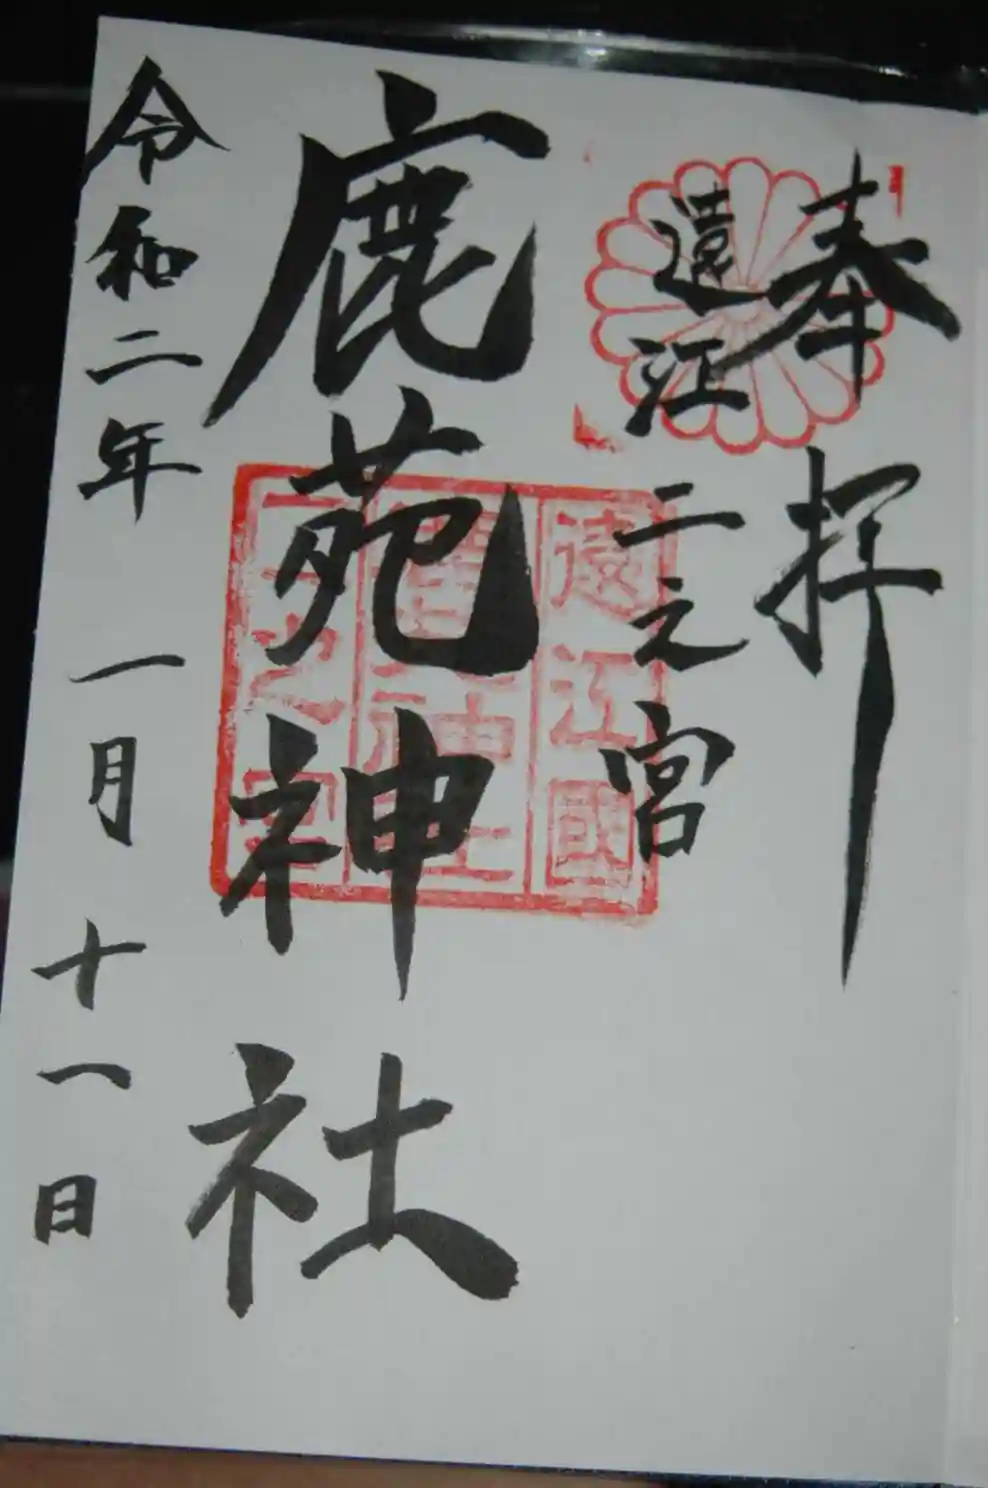 奉拝
遠江二之宮
鹿苑神社
令和二年一月十一日
遠江國
二之宮